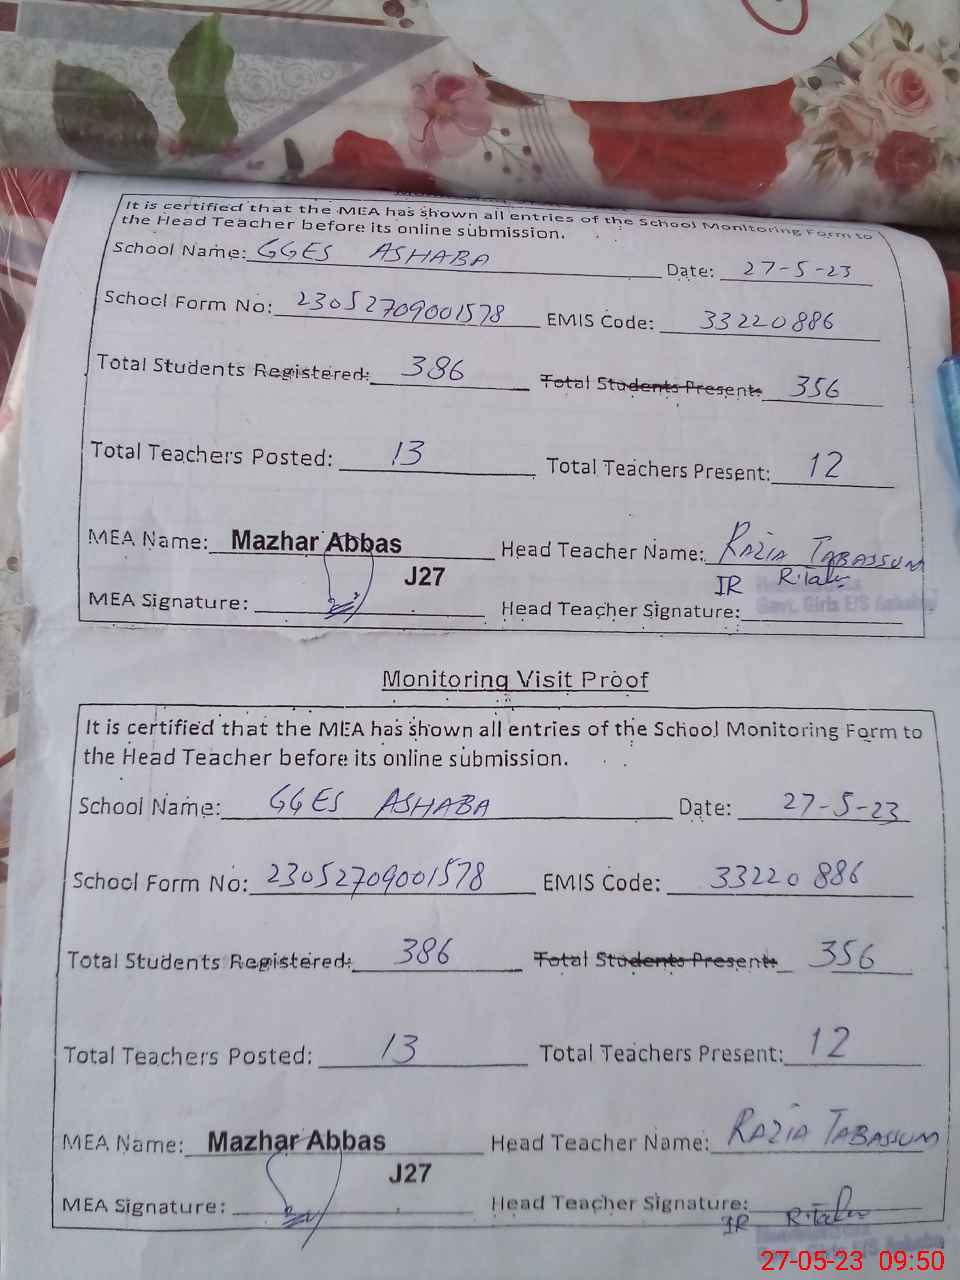 It is certified that the MEA has shown all entries of the School Monitoring Form to
the Head Teacher before its online submission.
School Name: GGES ASHABA Date: 27-5-23
School Form No: 23052709001578 EMIS Code: 33220886
Total Students Registered: 386 Total Students Present: 356
Total Teachers Posted: 13 Total Teachers Present: 12
MEA Name: Mazhar Abbas Head Teacher Name: RAZIA TABASSUM
J27
MEA Signature: Head Teacher Signature:
Govt. Girls E/S
Monitoring Visit Proof
It is certified that the MEA has shown all entries of the School Monitoring Form to
the Head Teacher before its online submission.
School Name: GGES ASHABA Date: 27-5-23
School Form No: 23052709001578 EMIS Code: 33220886
Total Students Registered: 386 Total Students Present: 356
Total Teachers Posted: 13 Total Teachers Present: 12
MEA Name: Mazhar Abbas Head Teacher Name: RAZIA TABASSUM
J27
MEA Signature: Head Teacher Signature:
27-05-23 09:50